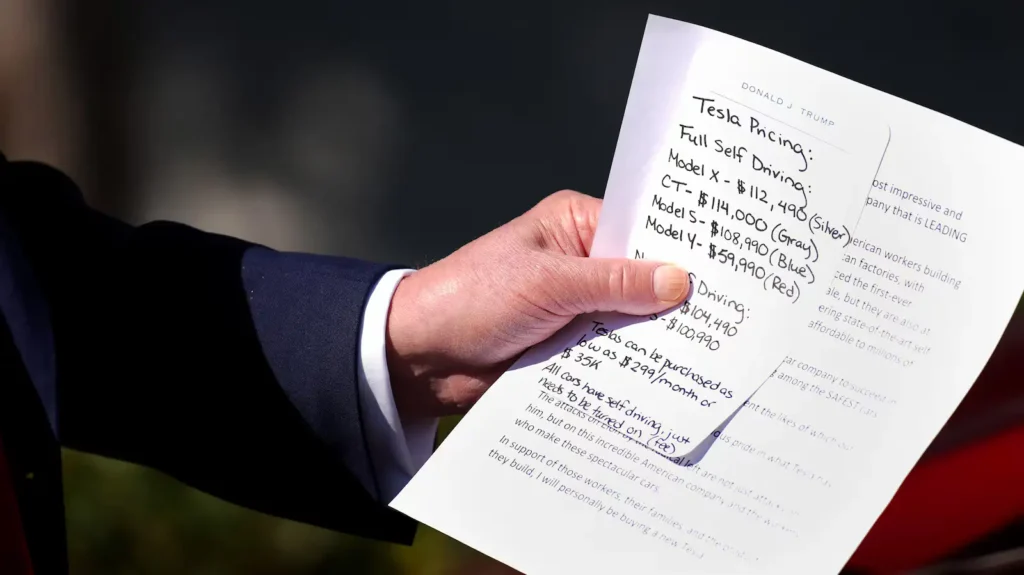 DONALD J. TRUMP
Tesla Pricing:
Full Self Driving:
Model X - $112,490 (Silver)
CT - $114,000 (Gray)
Model S - $108,990 (Blue)
Model Y - $59,990 (Red)
Driving:
$104,490
- $100,990
Teslas can be purchased as
low as $299/month or
$35K
All cars have self driving, just
needs to be turned on (fee)
ost impressive and
pany that is LEADING
erican workers building
can factories, with
ced the first-ever
ale, but they are also at
ering state-of-the-art self
affordable to millions of
ar company to succeed in
among the SAFEST cars
ent the likes of which our
ous pride in what Tesla has
The attacks on left are not just attacks on
him, but on this incredible American company and the workers
who make these spectacular cars.
In support of those workers, their families, and the
they build, I will personally be buying a new Tesla